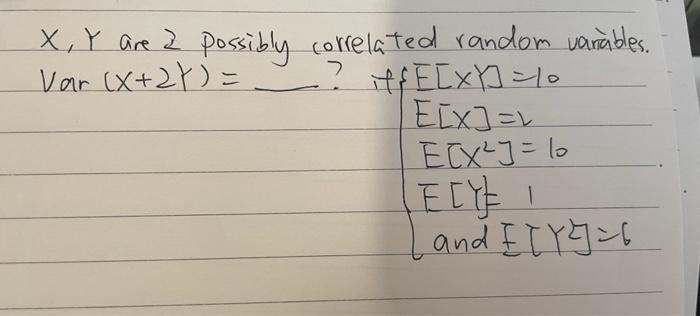 X, Y are 2 possibly correlated random variables.
Var (X+2Y) = ___? if { E[XY] = 10
E[X] = 2
E[X²] = 10
E[Y] = 1
and E[Y²] = 6